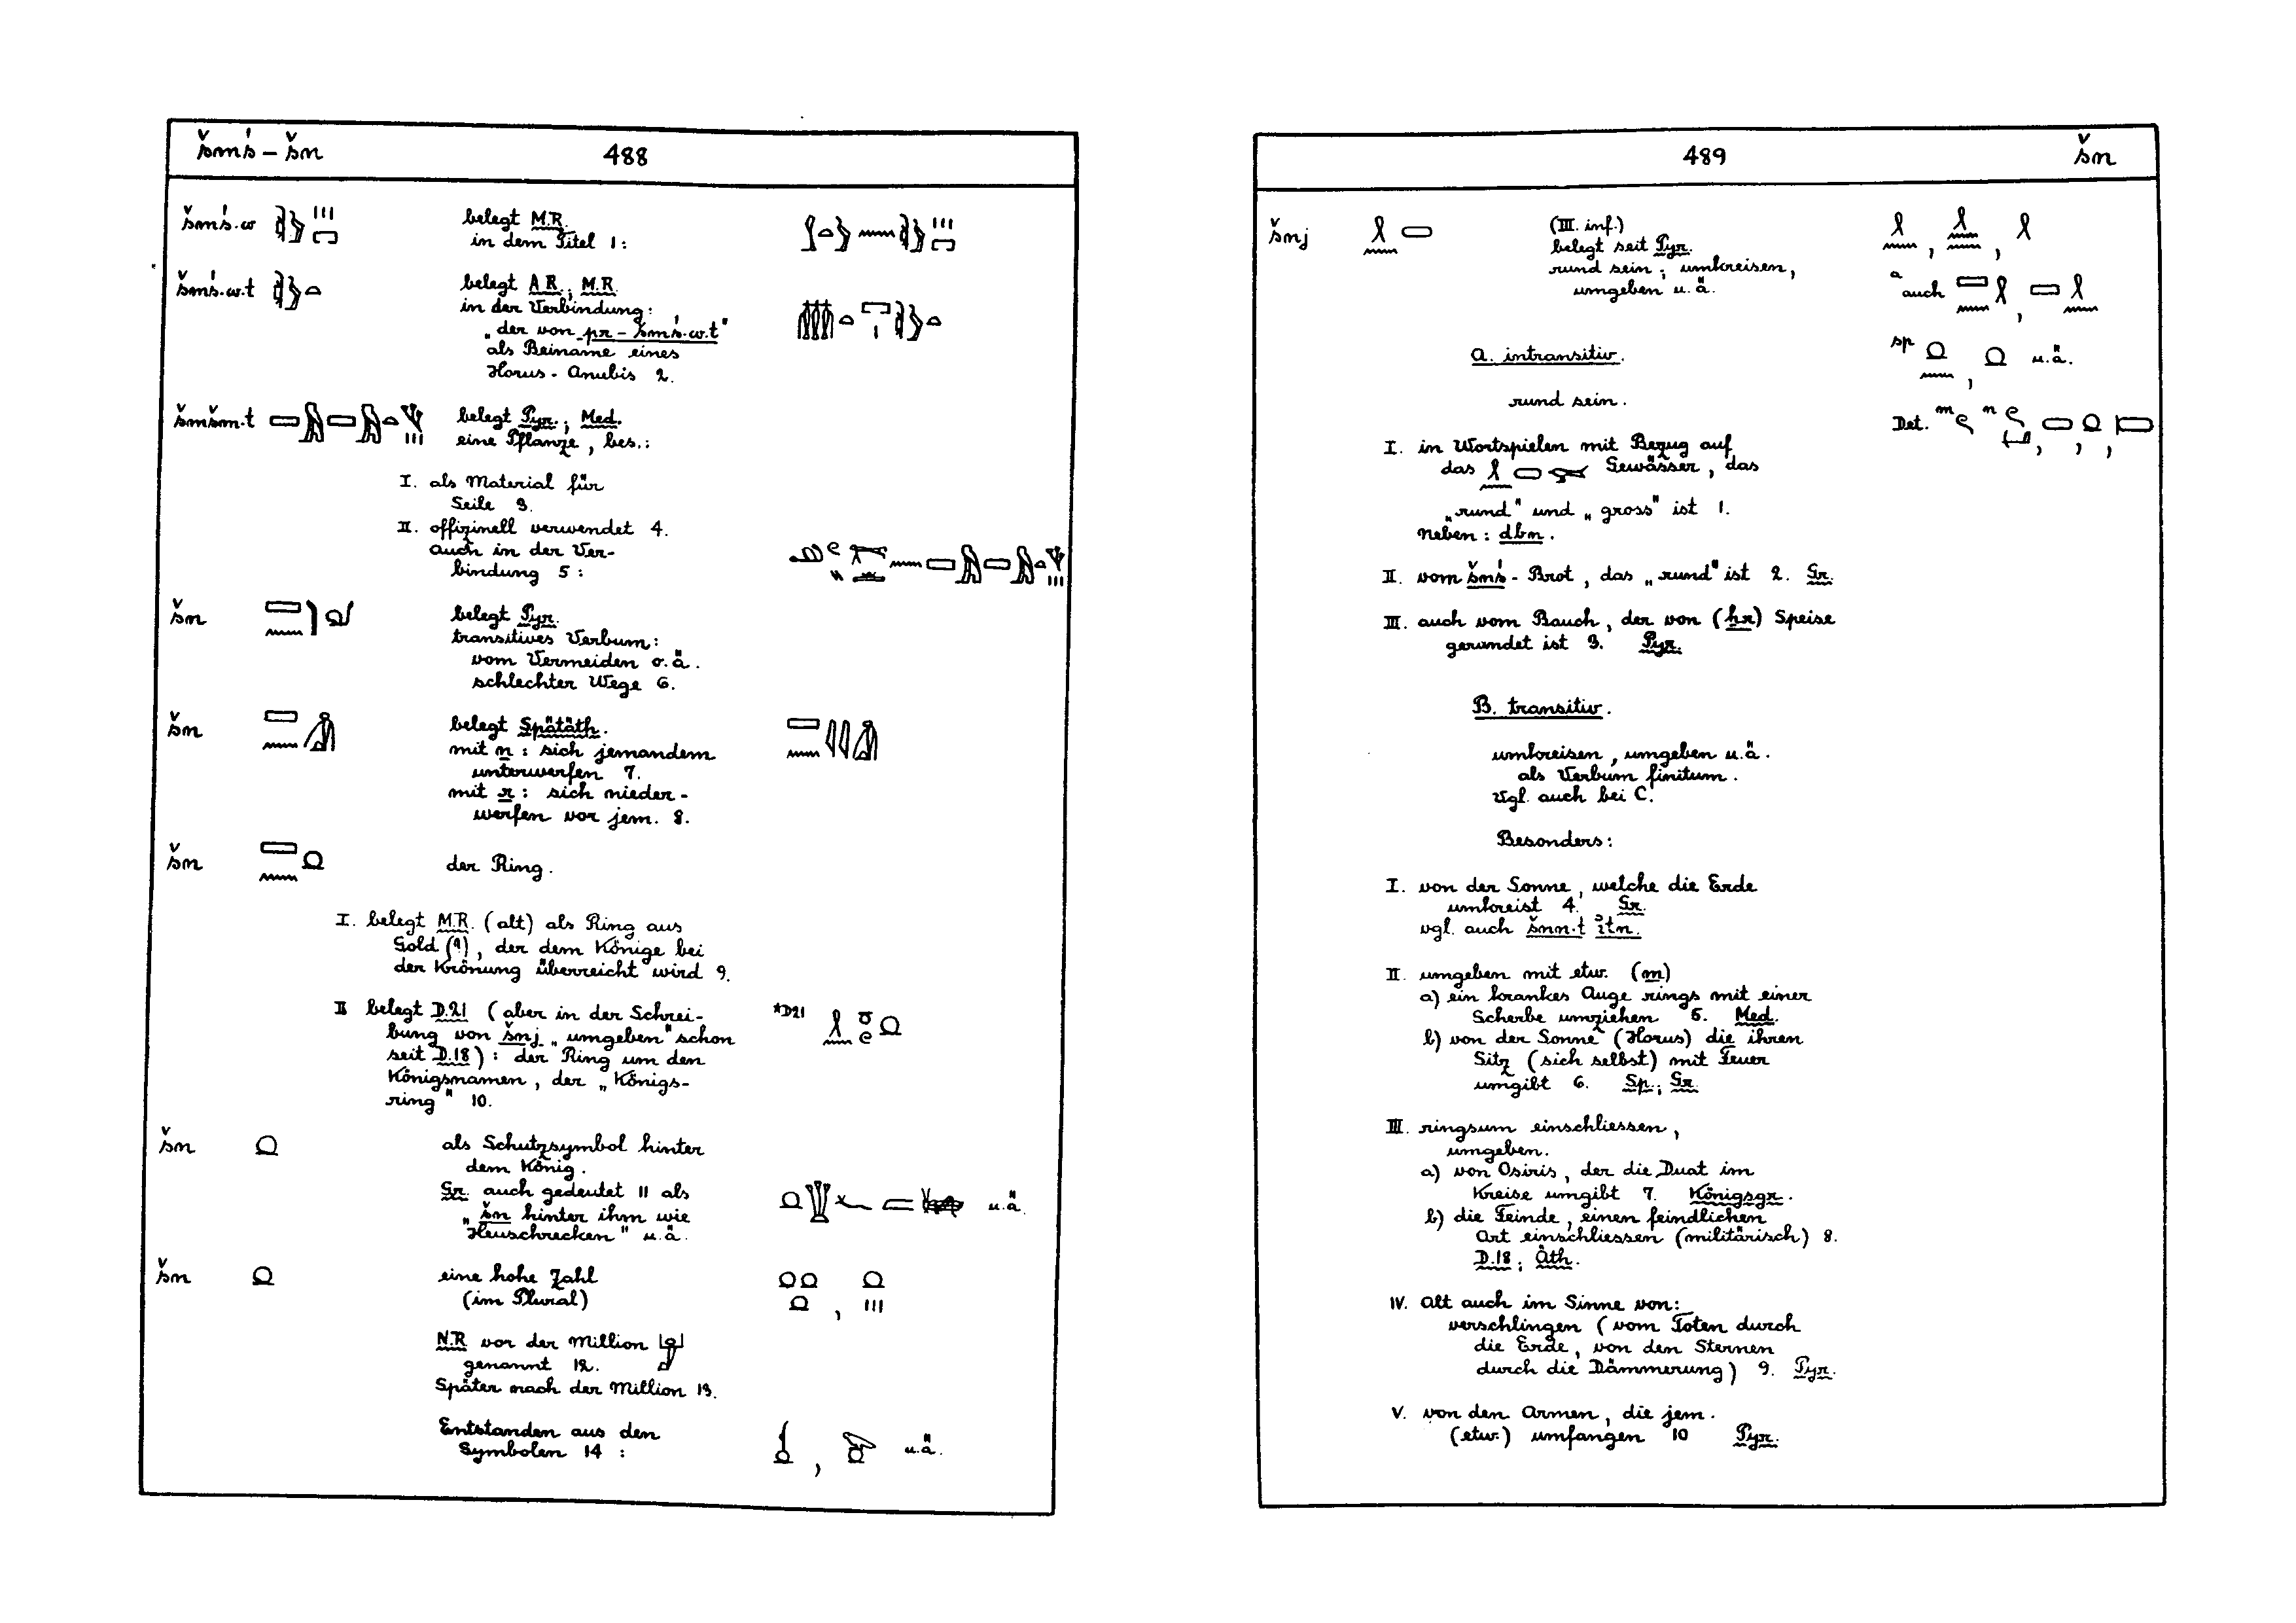 šmś – šn
488
šmś.w
belegt M.R.
in dem Titel 1 :
šmś.w.t
belegt A.R.; M.R.
in der Verbindung:
„der von pr – šmś.w.t"
als Beiname eines
Horus - Anubis 2.
šmšm.t
belegt Pyr.; Med.
eine Pflanze, bes.:
I. als Material für
Seile 3.
II. offizinell verwendet 4.
auch in der Ver-
bindung 5 :
šn
belegt Pyr.
transitives Verbum:
vom Vermeiden o.ä.
schlechter Wege 6.
šn
belegt Spätäth.
mit n : sich jemandem
unterwerfen 7.
mit r : sich nieder-
werfen vor jem. 8.
šn
der Ring.
I. belegt M.R. (alt) als Ring aus
Gold (?), der dem Könige bei
der Krönung überreicht wird 9.
II belegt D.21 (aber in der Schrei-
bung von šnj „umgeben" schon
seit D.18) : der Ring um den
Königsnamen, der „Königs-
ring" 10.
*D21
šn
als Schutzsymbol hinter
dem König.
Gr. auch gedeutet 11 als
„šn hinter ihm wie
Heuschrecken" u.ä.
u.ä.
šn
eine hohe Zahl
(im Plural)
N.R vor der Million
genannt 12.
Später nach der Million 13.
Entstanden aus den
Symbolen 14 :
u.ä.
489
šn
šnj
(III. inf.)
belegt seit Pyr.
rund sein; umkreisen,
umgeben u.ä.
a auch
sp
u.ä.
Det. m n
A. intransitiv.
rund sein.
I. in Wortspielen mit Bezug auf
das Gewässer, das
„rund" und „gross" ist 1.
Neben : dbn.
II. vom šnś - Brot, das „rund" ist 2. Gr.
III. auch vom Bauch, der von (ḥr) Speise
gerundet ist 3. Pyr.
B. transitiv.
umkreisen, umgeben u.ä.
als Verbum finitum.
Vgl. auch bei C.
Besonders:
I. von der Sonne, welche die Erde
umkreist 4. Gr.
vgl. auch šnn.t ỉtn.
II. umgeben mit etw. (m)
a) ein krankes Auge rings mit einer
Scherbe umziehen 5. Med.
b) von der Sonne (Horus) die ihren
Sitz (sich selbst) mit Feuer
umgibt 6. Sp.; Gr.
III. ringsum einschliessen,
umgeben.
a) von Osiris, der die Duat im
Kreise umgibt 7. Königsgr.
b) die Feinde, einen feindlichen
Ort einschliessen (militärisch) 8.
D.18; Äth.
IV. Alt auch im Sinne von:
verschlingen (vom Toten durch
die Erde, von den Sternen
durch die Dämmerung) 9. Pyr.
V. von den Armen, die jem.
(etw.) umfangen 10 Pyr.